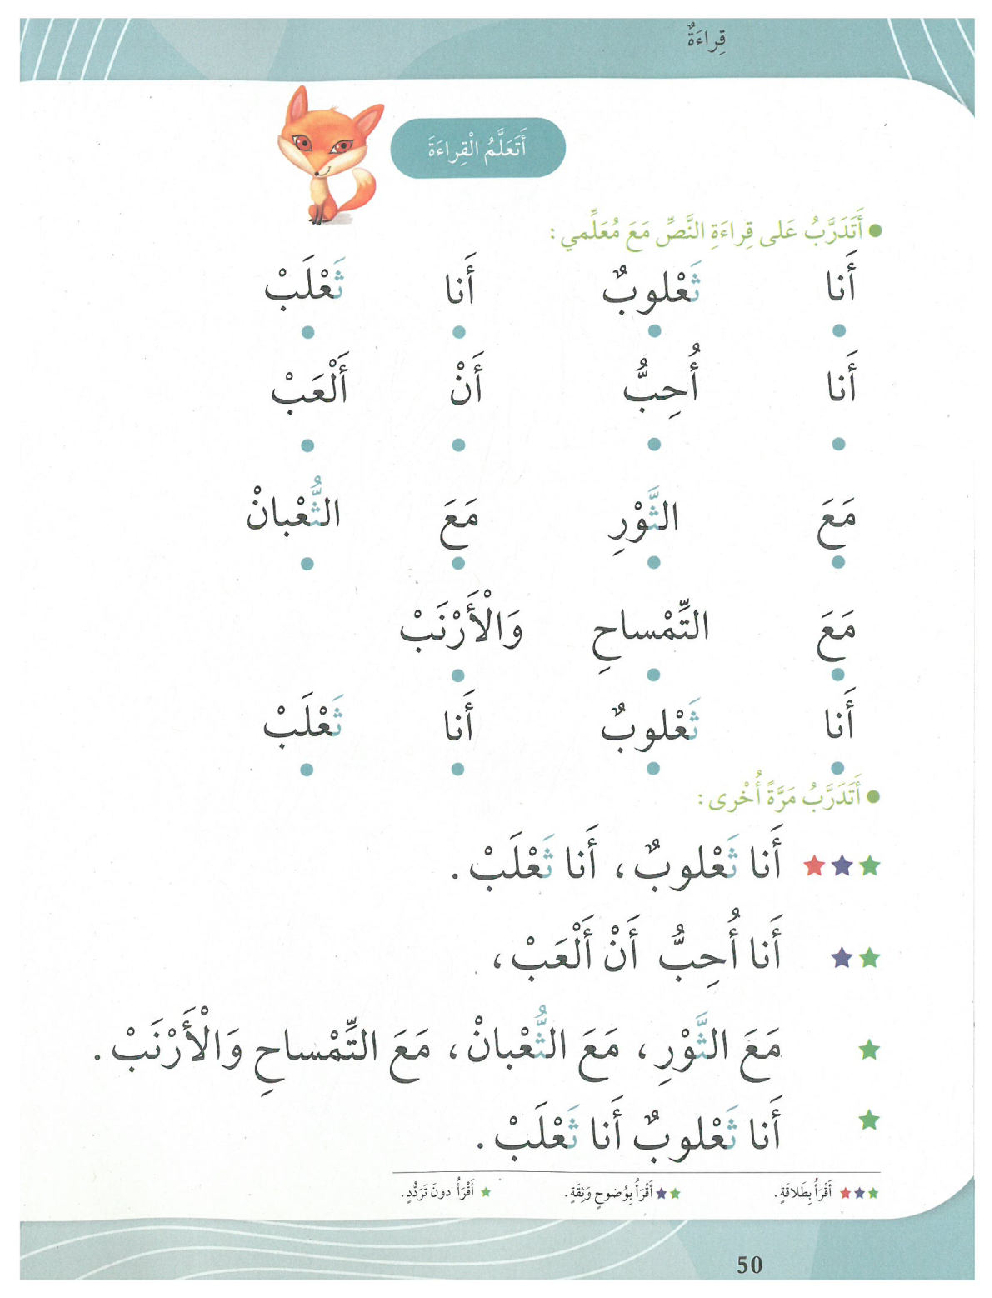 قِراءَةٌ
أَتَعَلَّمُ الْقِراءَةَ
● أَتَدَرَّبُ عَلى قِراءَةِ النَّصِّ مَعَ مُعَلِّمي:
أَنا ثَعْلوبٌ أَنا ثَعْلَبْ
أَنا أُحِبُّ أَنْ أَلْعَبْ
مَعَ الثَّوْرِ مَعَ الثُّعْبانْ
مَعَ التِّمْساحِ وَالْأَرْنَبْ
أَنا ثَعْلوبٌ أَنا ثَعْلَبْ
● أَتَدَرَّبُ مَرَّةً أُخْرى:
أَنا ثَعْلوبٌ، أَنا ثَعْلَبْ.
أَنا أُحِبُّ أَنْ أَلْعَبْ،
مَعَ الثَّوْرِ، مَعَ الثُّعْبانْ، مَعَ التِّمْساحِ وَالْأَرْنَبْ.
أَنا ثَعْلوبٌ أَنا ثَعْلَبْ.
★★★ أَقْرَأُ بِطَلاقَةٍ. ★★ أَقْرَأُ بِوُضوحٍ وَثِقَةٍ. ★ أَقْرَأُ دونَ تَرَدُّدٍ.
50